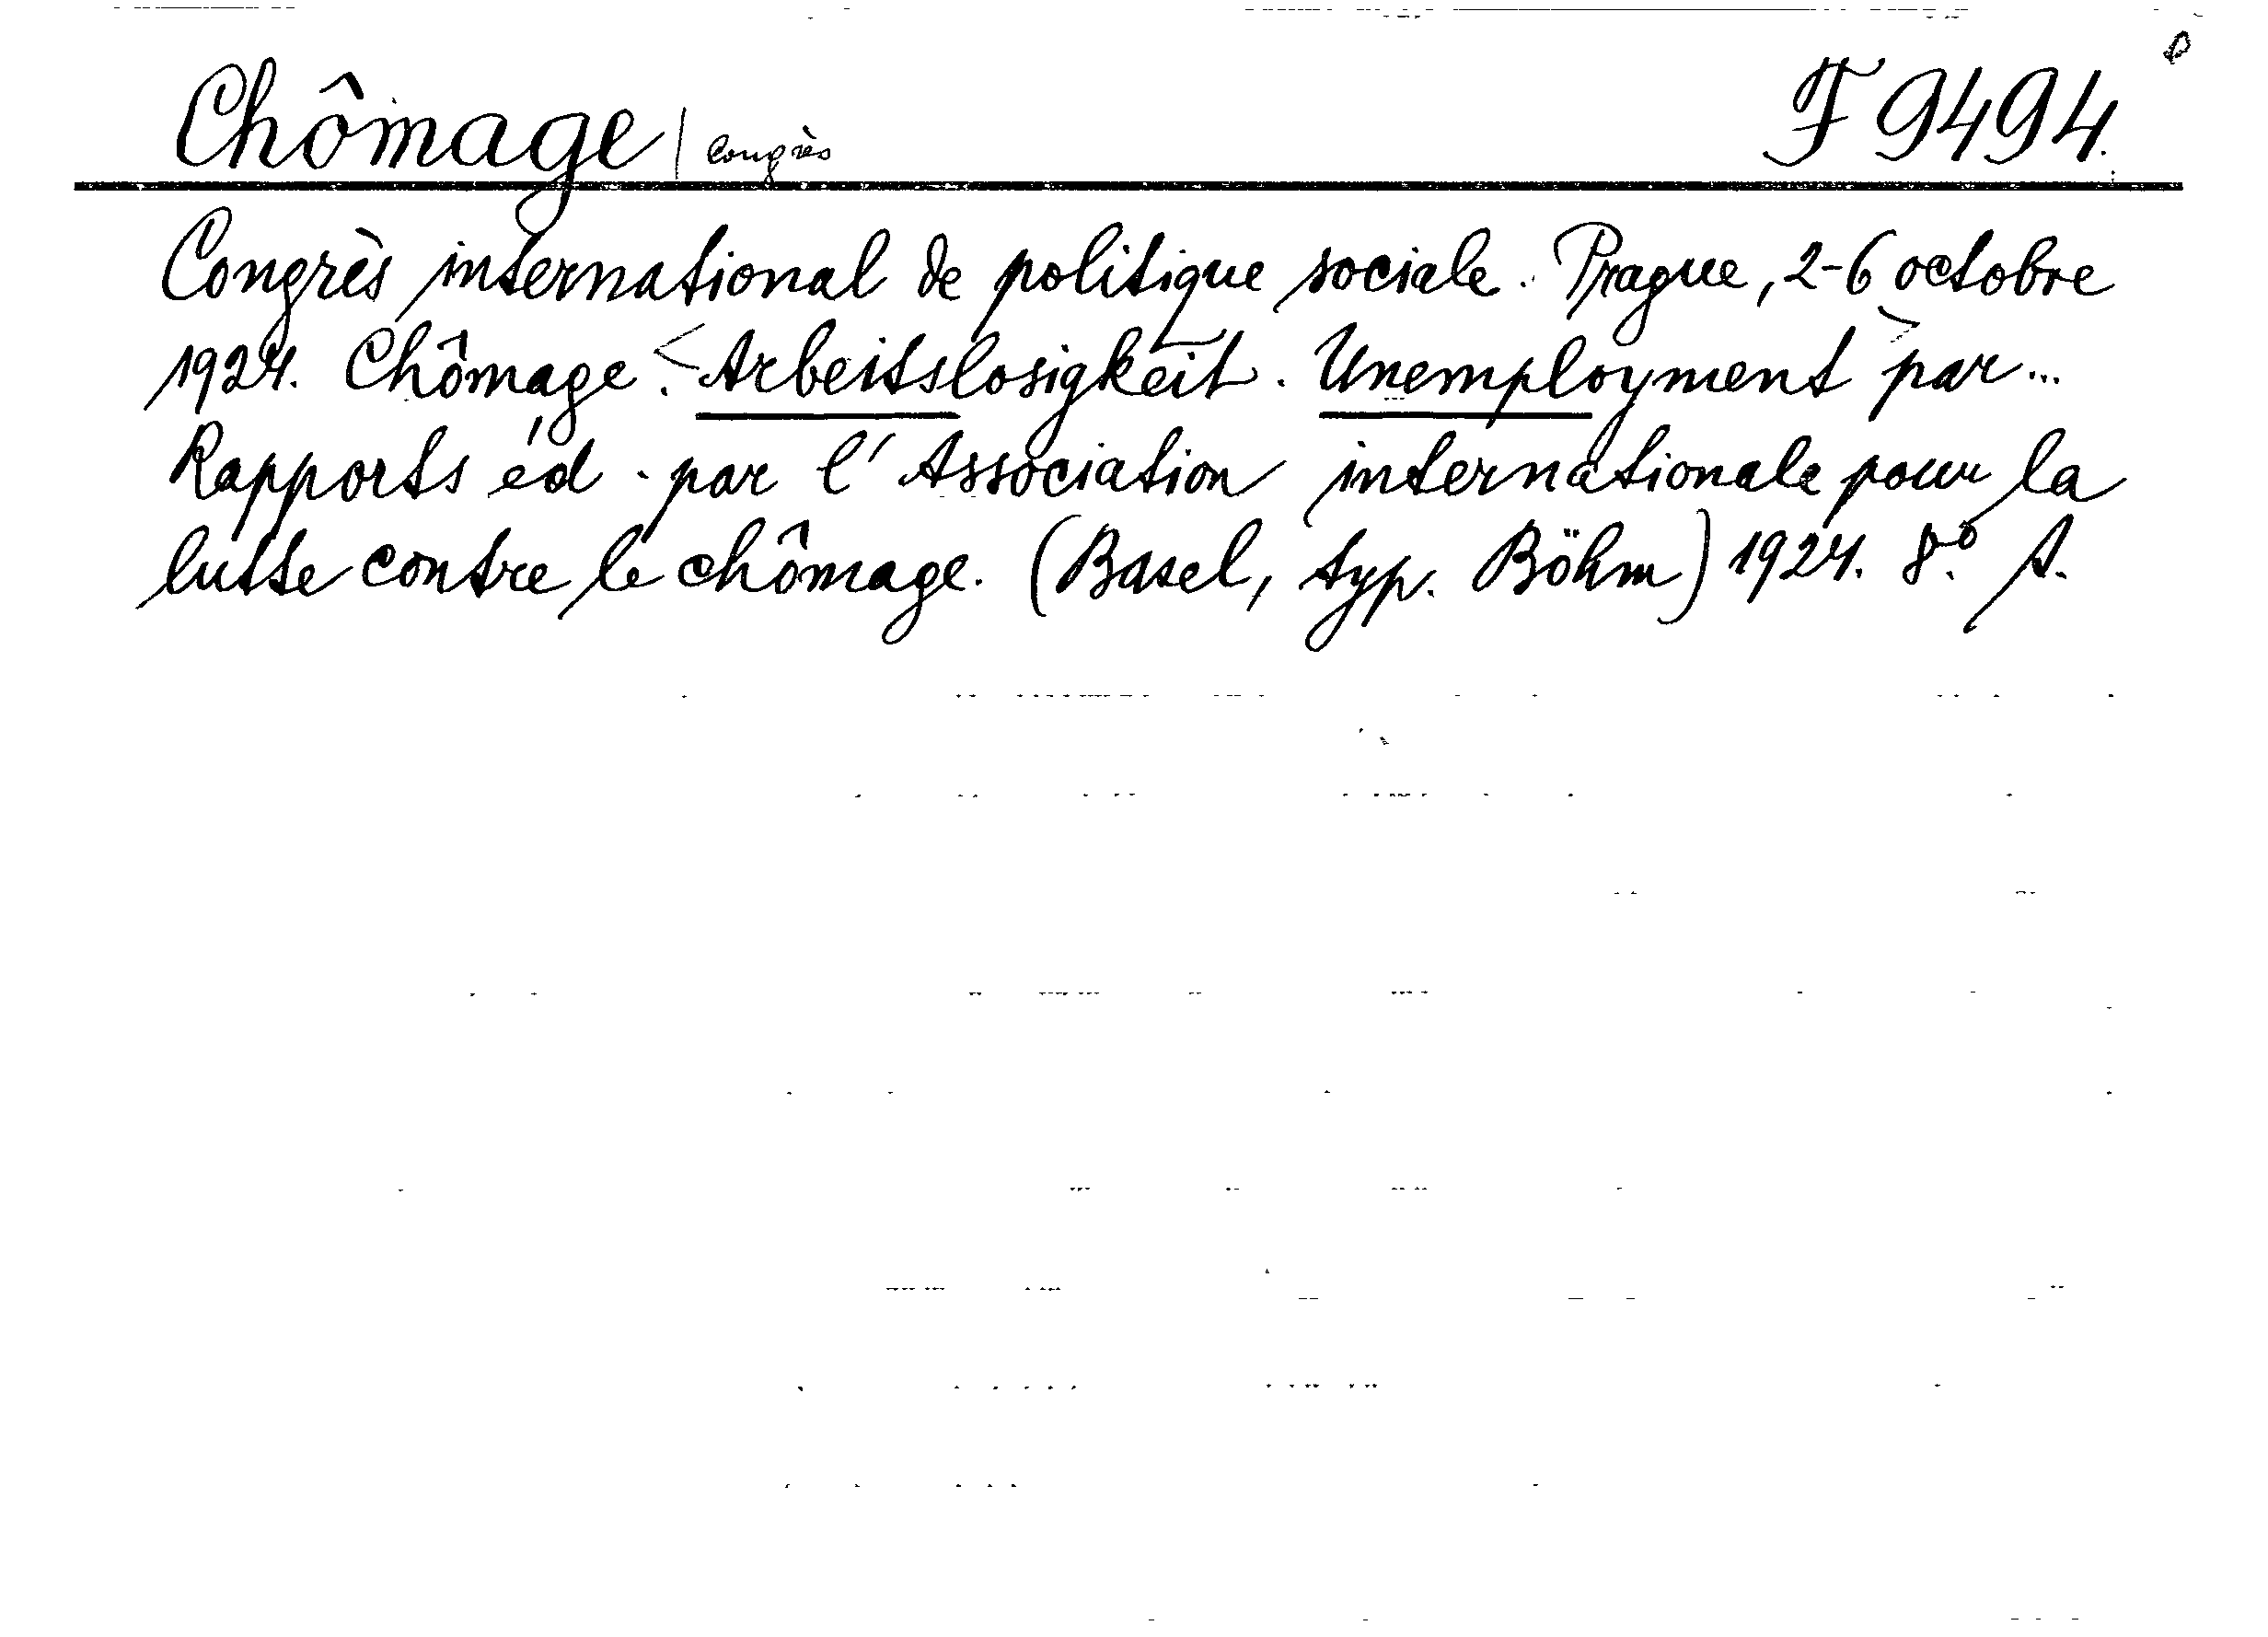 Chômage | Congrès F 9494.
Congrès international de politique sociale. Prague, 2-6 octobre
1924. Chômage. <Arbeitslosigkeit. Unemployment> par...
Rapports éd. par l'Association internationale pour la
lutte contre le chômage. (Basel, typ. Böhm) 1924. 8.º A.